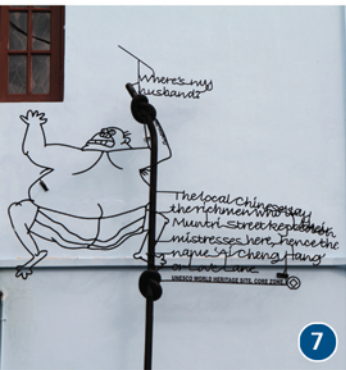 Where's my
husband?
The local Chinese say
the rich men who
Muntri Street kept their
mistresses here, hence the
name 'Ai Cheng Hang'
or Love Lane
UNESCO WORLD HERITAGE SITE, CORE ZONE
7